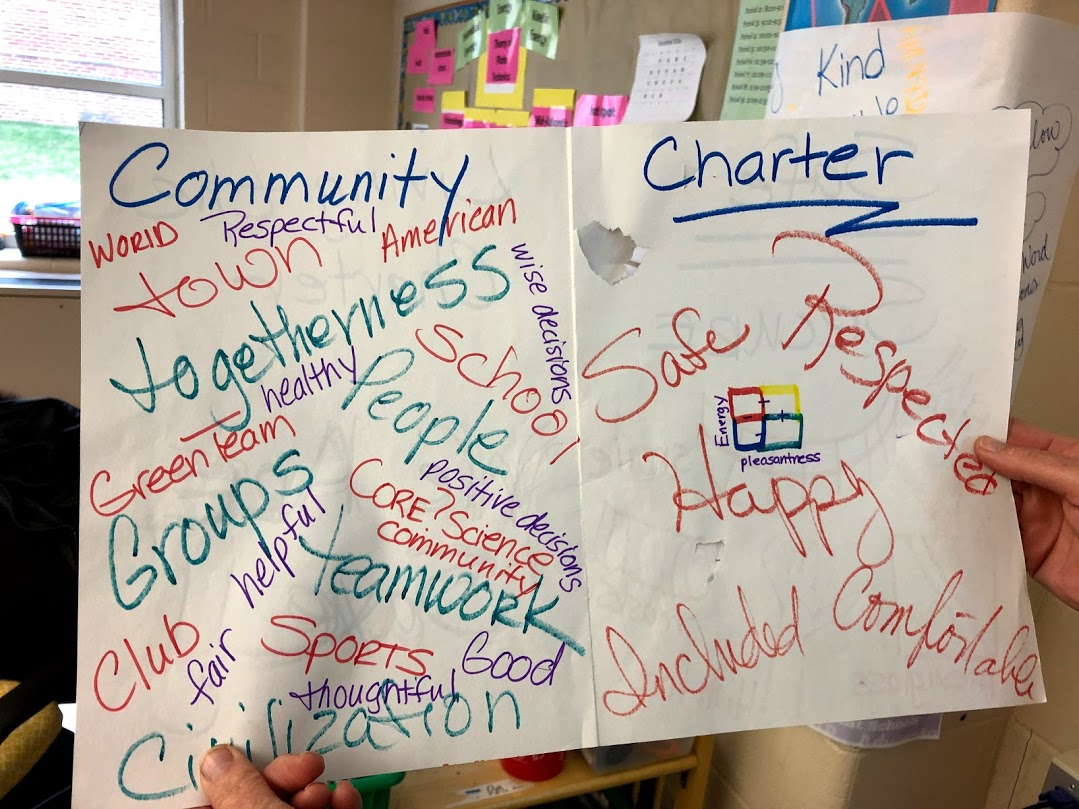 Community
WORLD
Respectful
American
town
togetherness
wise decisions
School
healthy
People
Green Team
Groups
positive decisions
CORE 7 Science
Community
helpful
teamwork
Club
fair
Sports
Good
thoughtful
Civilization
Charter
Safe
Respected
Energy
pleasantness
Happy
Included
Comfortable
Kind